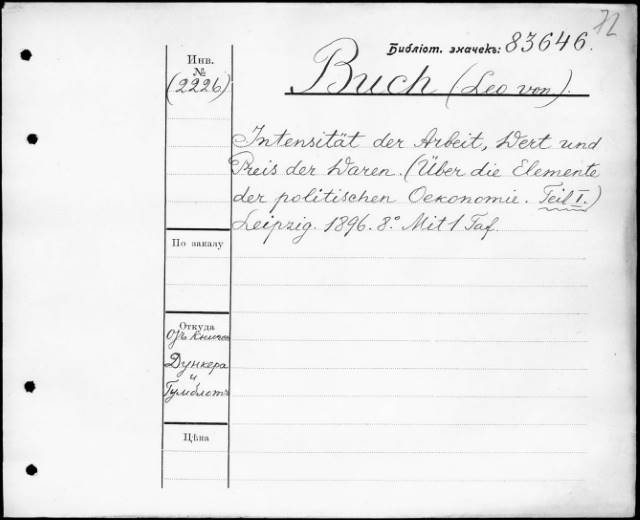 72
Библіот. значекъ: 83646.
Инв.
№
(2226)
Buch (Leo von).
Intensität der Arbeit, Wert und
Preis der Waren. (Über die Elemente
der politischen Oekonomie. Teil I.)
Leipzig. 1896. 8.° Mit 1 Taf.
По заказу
Откуда
Дункера
и
Гумблотъ
Цѣна